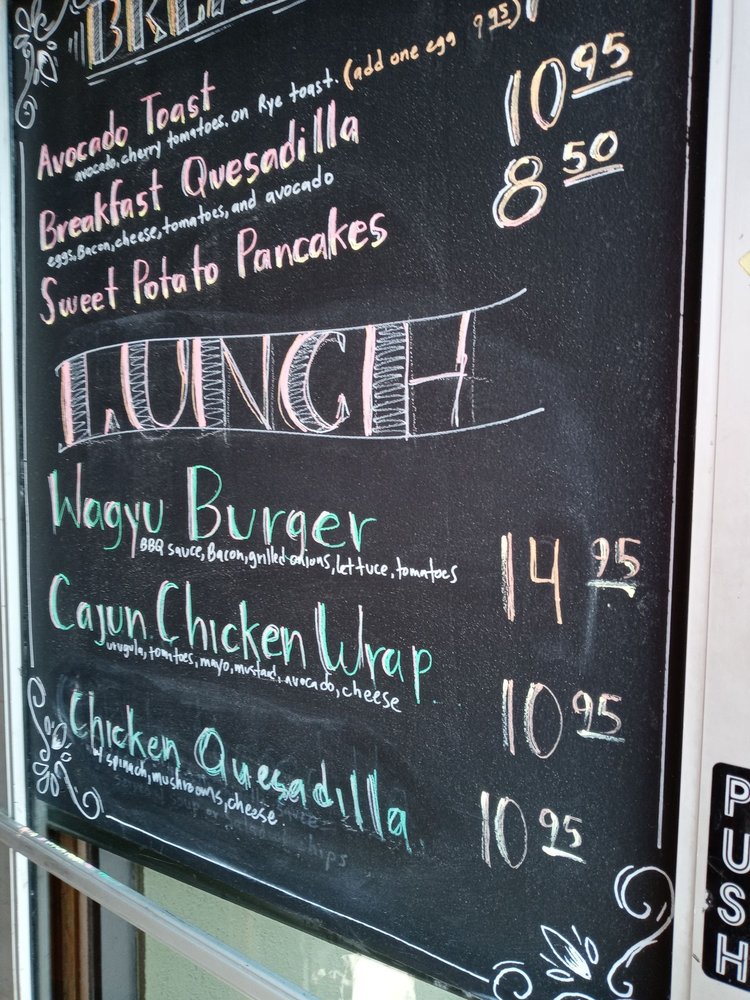 Avocado Toast
avocado, cherry tomatoes. on Rye toast. (add one egg 9 95)
Breakfast Quesadilla 10 95
eggs, Bacon, cheese, tomatoes, and avocado
Sweet Potato Pancakes 8 50
LUNCH
Wagyu Burger 14 95
BBQ sauce, Bacon, grilled onions, lettuce, tomatoes
Cajun Chicken Wrap 10 95
urugula, tomatoes, mayo, mustard, avocado, cheese
Chicken Quesadilla 10 95
w/ spinach, mushrooms, cheese
PUSH